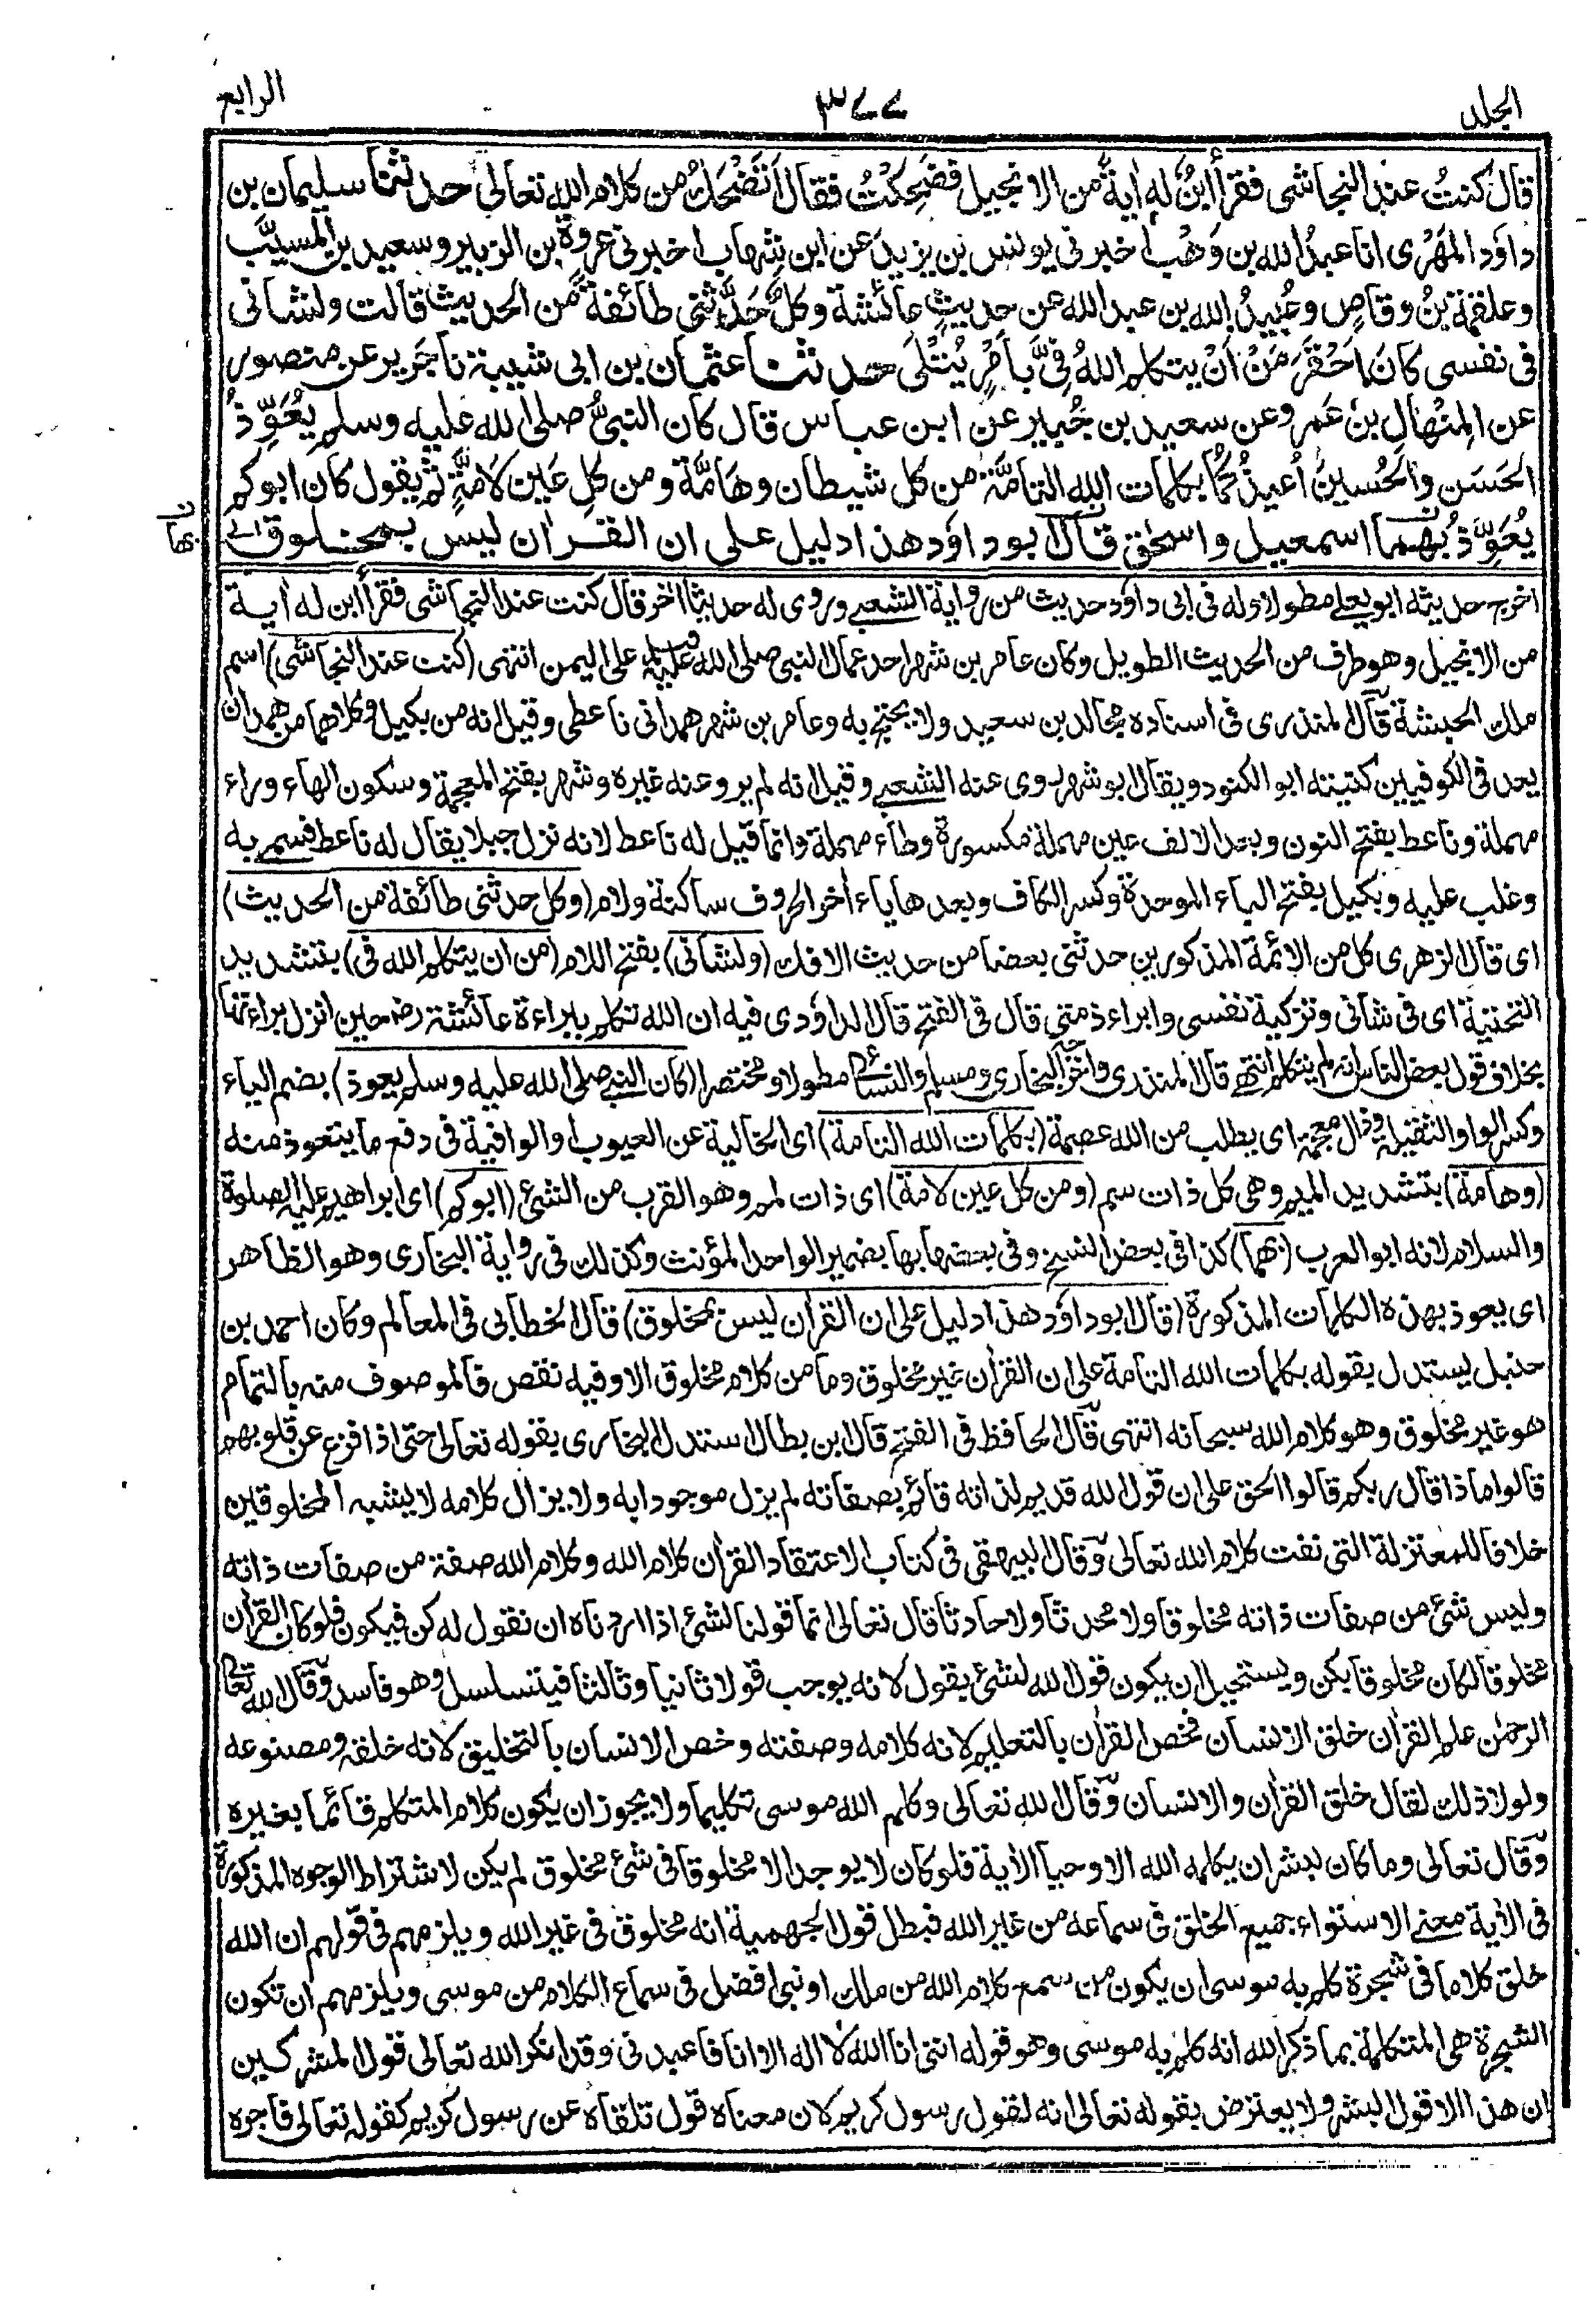 الجلد ٣٧٧ الرابع
قال كنتُ عند النجاشى فقرأ ابنٌ له اٰيةً من الانجيل فضَحِكتُ فقال أتَضْحَكُ من كلام الله تعالى حدثنا سليمان بن
داؤد المَهْرى انا عبدُ الله بن وَهْب اخبرنى يونس بن يزيدَ عن ابن شِهاب اخبرنى عروةُ بن الزبير وسعيد بن المسيَّب
وعلقمة بنُ وقاصٍ وعُبيدُ الله بن عبد الله عن حديثِ عائشة وكلٌ حَدَّثنى طائفةً من الحديث قالت ولشانى
فى نفسى كان اَحْقَرَ مَنْ اَنْ يتكلم اللهُ فِىَّ بأمْرٍ يُتْلَى حدثنا عثمان بن ابى شيبة نا جَرير عن منصور
عن المِنْهالِ بن عَمرو عن سعيد بن جُبير عن ابن عباس قال كان النبىُّ صلى الله عليه وسلم يُعَوِّذُ
الحَسَن والحُسينَ اُعيذُكما بكلمات الله التامَّة من كل شيطان وهَامَّة ومن كلِ عَين لَامَّةٍ ثم يقول كان ابوكم
يُعَوِّذُ بهما اسمعيل واسحٰق قال ابوداؤد هذا دليل على ان القراٰن ليس بمخلوق
بها
اخرج حديثه ابويعلى مطولا وله فى ابى داؤد حديث من رواية الشعبى وروى له حديثا اٰخر قال كنت عند النجاشى فقرأ ابن له اٰية
من الانجيل وهو طرف من الحديث الطويل وكان عامر بن شهر احد عمال النبى صلى الله عليه وسلم على اليمن انتهى (كنت عند النجاشى) اسم
ملك الحبشة قال المنذرى فى اسناده مجالد بن سعيد ولا يحتج به وعامر بن شهر همدانى ناعطى وقيل انه من بكيل وكلاهما من همدان
يعد فى الكوفيين كنيته ابو الكنود ويقال ابو شهر روى عنه الشعبى وقيل انه لم يرو عنه غيره وشهر بفتح المعجمة وسكون الهاء وراء
مهملة وناعط بفتح النون وبعد الالف عين مهملة مكسورة وطاء مهملة وانما قيل له ناعط لانه نزل جبلا يقال له ناعط فسمى به
وغلب عليه وبكيل بفتح الباء الموحدة وكسر الكاف وبعدها ياء اٰخر الحروف ساكنة ولام (وكل حدثنى طائفة من الحديث)
اى قال الزهرى كل من الائمة المذكورين حدثنى بعضا من حديث الافك (ولشانى) بفتح اللام (من ان يتكلم الله فى) بتشديد
التحتية اى فى شانى وتزكية نفسى وابراء ذمتى قال فى الفتح قال الداؤدى فيه ان الله تكلم ببراءة عائشة رضـ حين انزل براءتها
بخلاف قول بعض الناس انه لم يتكلم انتهى قال المنذرى واخرجه البخارى ومسلم والنسائى مطولا ومختصرا (كان النبى صلى الله عليه وسلم يعوذ) بضم الياء
وكسر الواو الثقيلة وذال معجمة اى يطلب من الله عصمة (بكلمات الله التامة) اى الخالية عن العيوب او الوافية فى دفع ما يتعوذ منه
(وهامة) بتشديد الميم وهى كل ذات سم (ومن كل عين لامة) اى ذات لمم وهو القرب من الشئ (ابوكم) اى ابراهيم عليه الصلوة
والسلام لانه ابو العرب (بهما) كذا فى بعض النسخ وفى بعضها بها بضمير الواحد المؤنث وكذلك فى رواية البخارى وهو الظاهر
اى يعوذ بهذه الكلمات المذكورة (قال ابوداؤد هذا دليل على ان القراٰن ليس بمخلوق) قال الخطابى فى المعالم وكان احمد بن
حنبل يستدل بقوله بكلمات الله التامة على ان القراٰن غير مخلوق وما من كلام مخلوق الا وفيه نقص فالموصوف منه بالتمام
هو غير مخلوق وهو كلام الله سبحانه انتهى قال الحافظ فى الفتح قال ابن بطال استدل البخارى بقوله تعالى حتى اذا فزع عن قلوبهم
قالوا ماذا قال ربكم قالوا الحق على ان قول الله قديم لذاته قائم بصفاته لم يزل موجودا به ولا يزال كلامه لا يشبه المخلوقين
خلافا للمعتزلة التى نفت كلام الله تعالى وقال البيهقى فى كتاب الاعتقاد القراٰن كلام الله وكلام الله صفة من صفات ذاته
وليس شئ من صفات ذاته مخلوقا ولا محدثا ولا حادثا قال تعالى انما قولنا لشئ اذا اردناه ان نقول له كن فيكون فلو كان القراٰن
مخلوقا لكان مخلوقا بكن ويستحيل ان يكون قول الله لشئ بقول لانه يوجب قولا ثانيا وثالثا فيتسلسل وهو فاسد وقال الله تعالى
الرحمٰن علم القراٰن خلق الانسان فخص القراٰن بالتعليم لانه كلامه وصفته وخص الانسان بالتخليق لانه خلقه ومصنوعه
ولولا ذلك لقال خلق القراٰن والانسان وقال الله تعالى وكلم الله موسى تكليما ولا يجوز ان يكون كلام المتكلم قائما بغيره
وقال تعالى وما كان لبشر ان يكلمه الله الا وحيا الاٰية فلو كان لا يوجد الا مخلوقا فى شئ مخلوق لم يكن لاشتراط الوجوه المذكورة
فى الاٰية معنى لاستواء جميع الخلق فى سماعه من غير الله فبطل قول الجهمية انه مخلوق فى غير الله ويلزمهم فى قولهم ان الله
خلق كلاما فى شجرة كلم به موسى ان يكون من سمع كلام الله من ملك او نبى افضل فى سماع الكلام من موسى ويلزمهم ان تكون
الشجرة هى المتكلمة بما ذكر الله انه كلم به موسى وهو قوله اننى انا الله لا اله الا انا فاعبدنى وقد انكر الله تعالى قول المشركين
ان هذا الا قول البشر ولا يعترض بقوله تعالى انه لقول رسول كريم لان معناه قول تلقاه عن رسول كريم كقوله تعالى فاجره